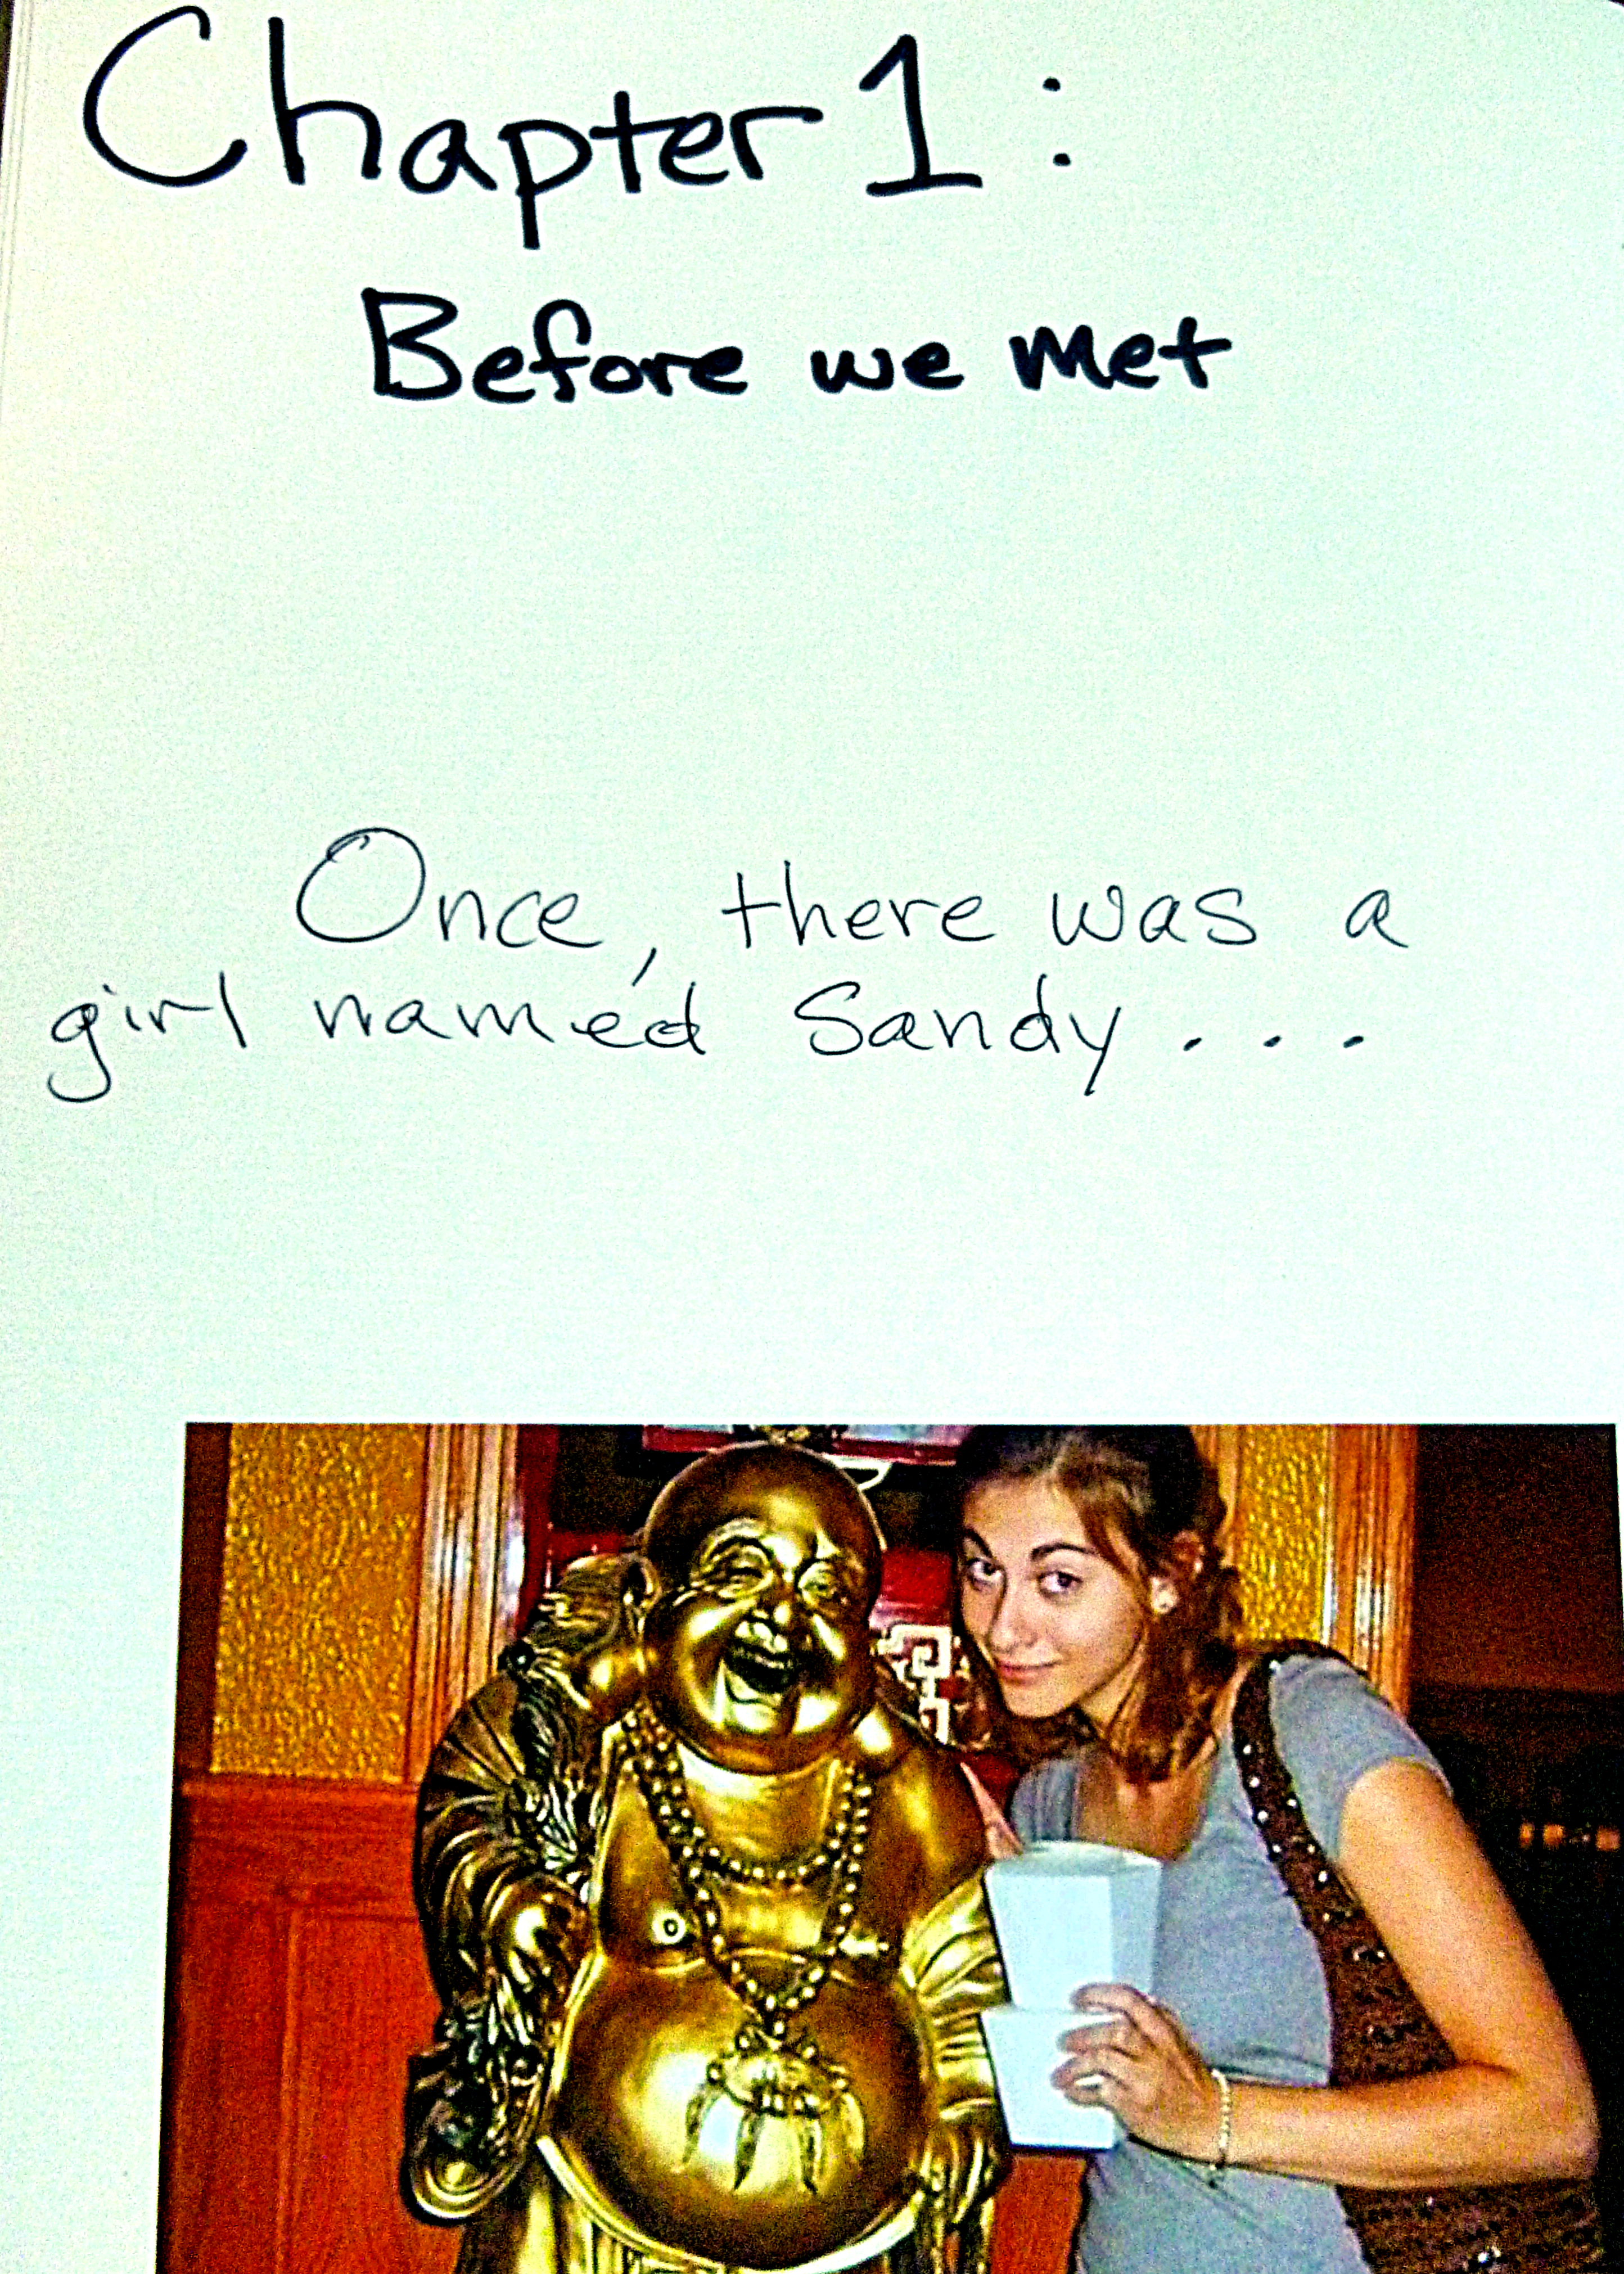 Chapter 1:
Before we met
Once, there was a
girl named Sandy...